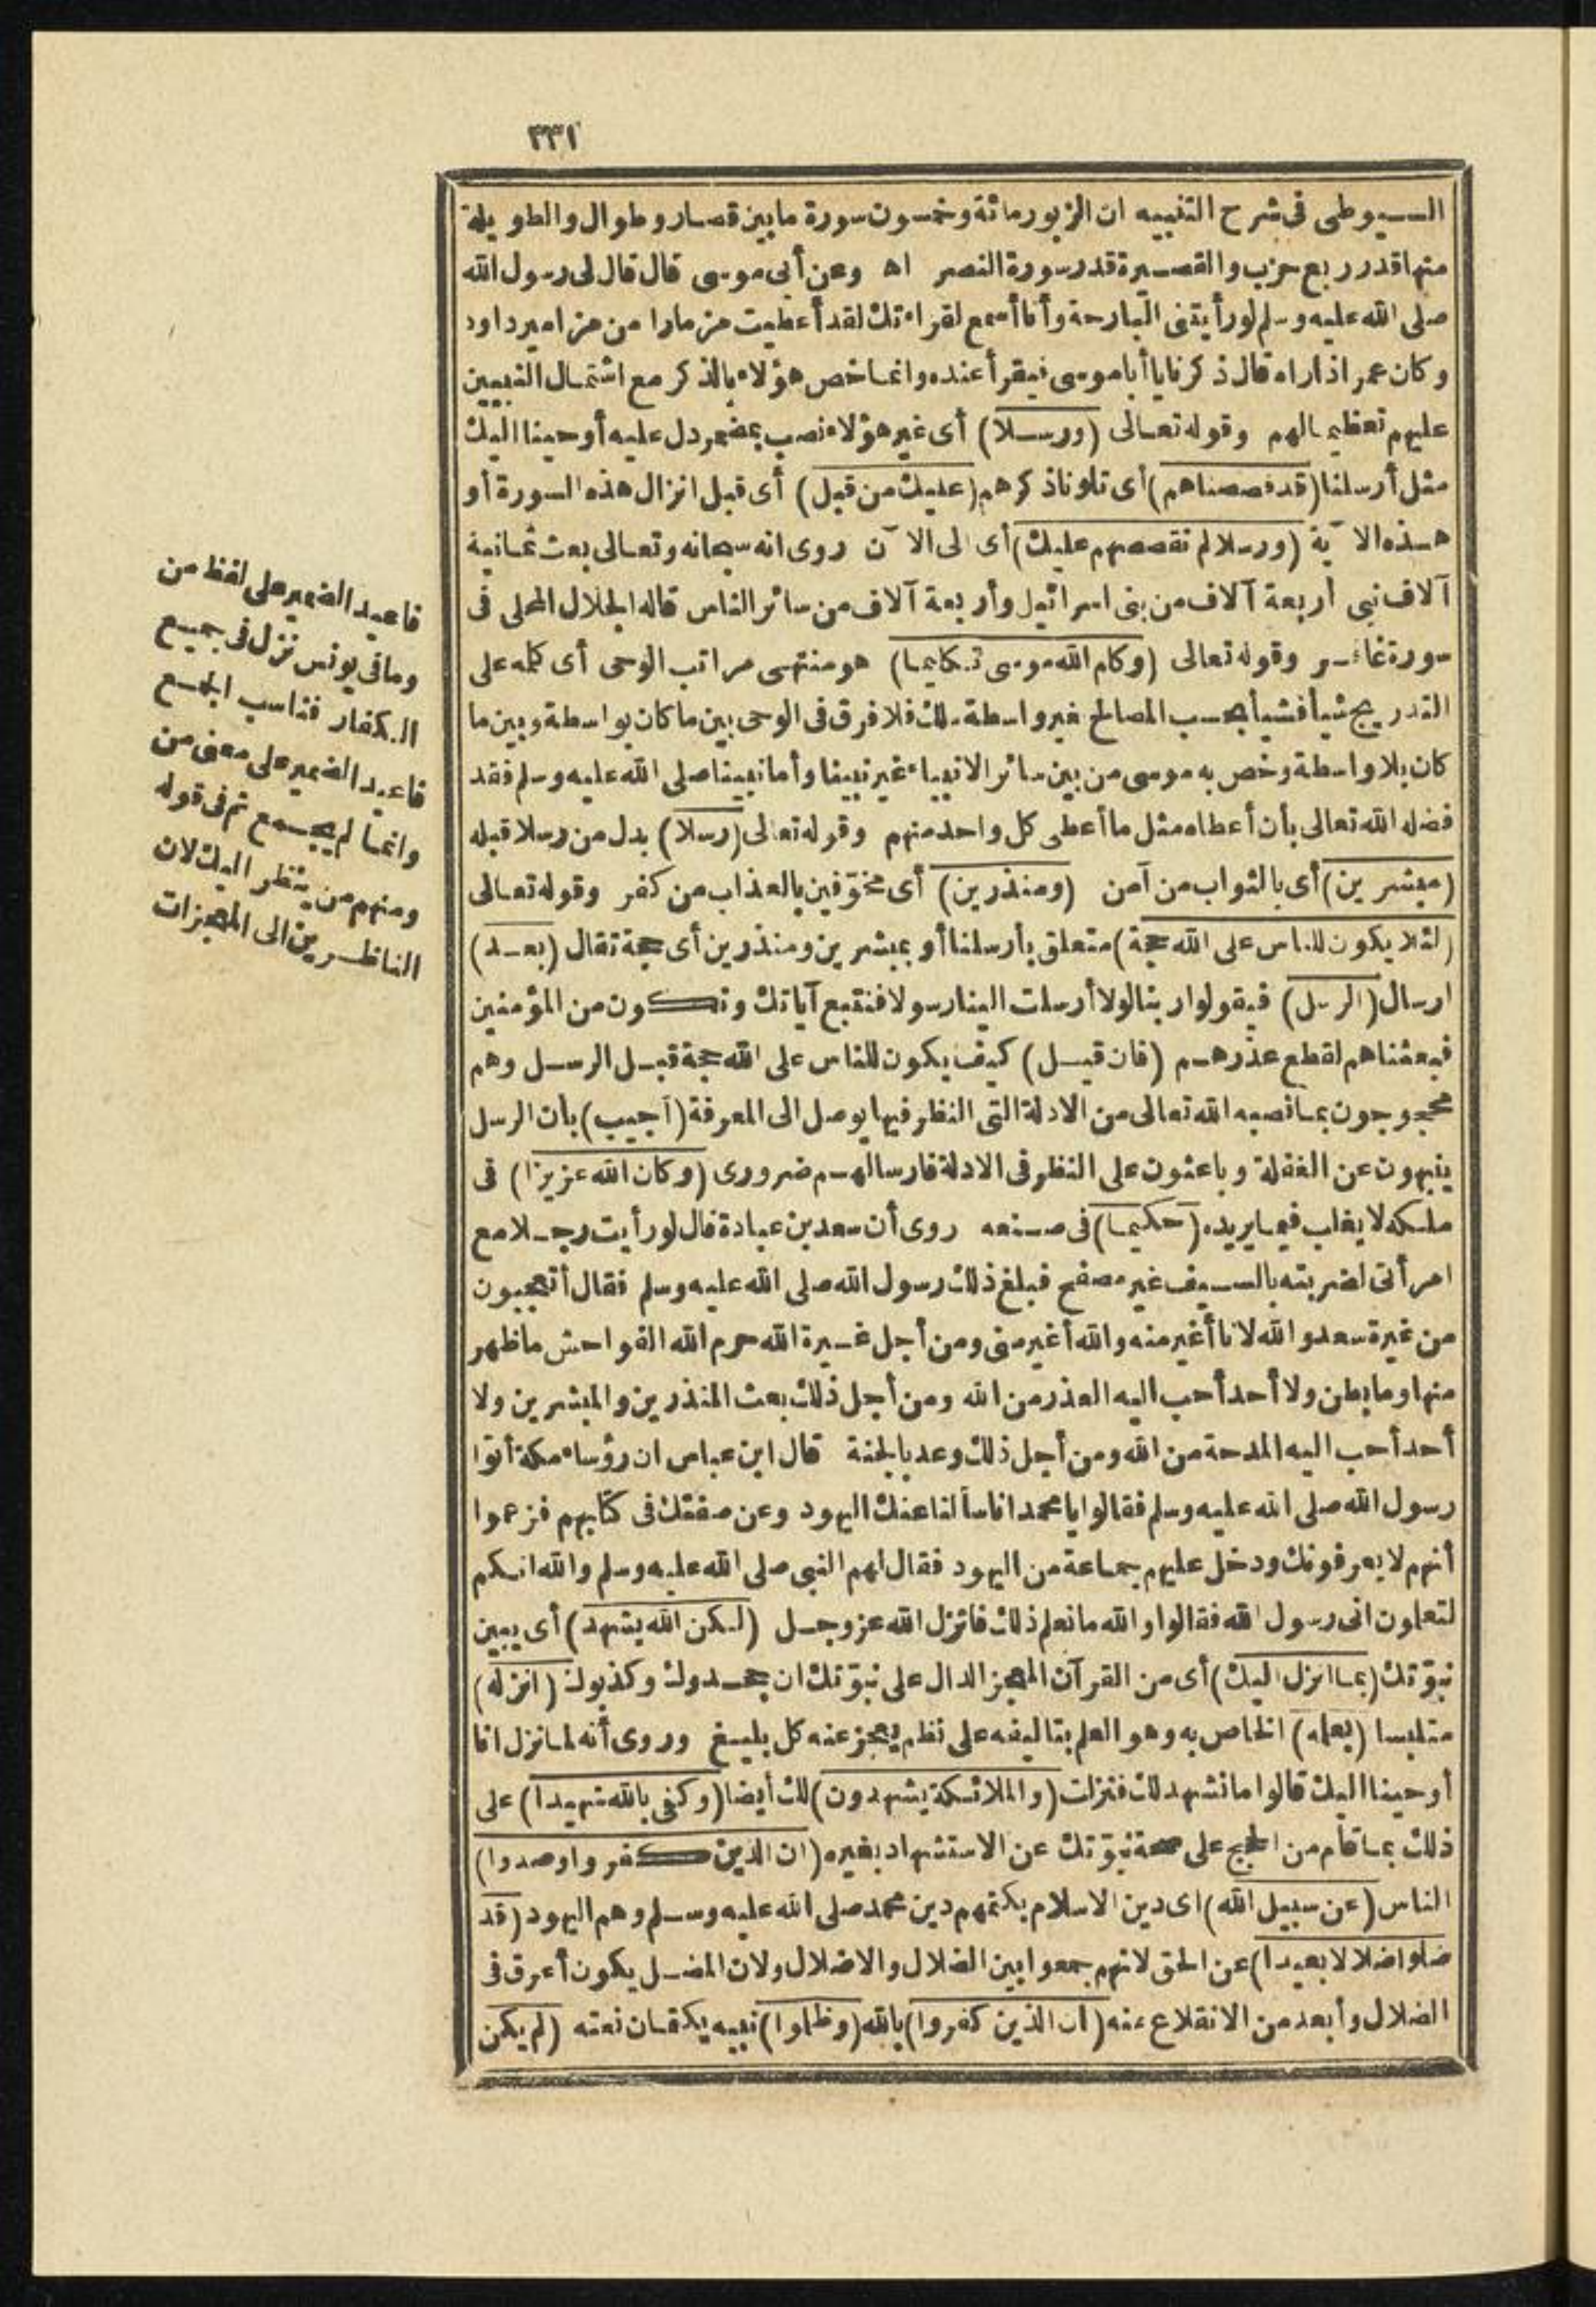 ٣٣١
السيوطى فى شرح التنبيه ان الزبور مائة وخمسون سورة ما بين قصار وطوال والطويلة
منها قدر ربع حزب والقصيرة قدر سورة النصر اه وعن أبى موسى قال قال لى رسول الله
صلى الله عليه وسلم لو رأيتنى البارحة وأنا أسمع لقراءتك لقد أعطيت مزمارا من مزامير داود
وكان عمر اذا رآه قال ذكرنا يا أبا موسى فيقرأ عنده وانما خص هؤلاء بالذكر مع اشتمال النبيين
عليهم تعظيما لهم وقوله تعالى (ورسلا) أى غير هؤلاء نصب بمضمر دل عليه أوحينا اليك
مثل أرسلنا (قد قصصناهم) أى تلونا ذكرهم (عليك من قبل) أى قبل انزال هذه السورة أو
هذه الآية (ورسلا لم نقصصهم عليك) أى الى الآن روى انه سبحانه وتعالى بعث ثمانية
آلاف نبى أربعة آلاف من بنى اسرائيل وأربعة آلاف من سائر الناس قاله الجلال المحلى فى
سورة غافر وقوله تعالى (وكلم الله موسى تكليما) هو منتهى مراتب الوحى أى كلمه على
التدريج شيأ فشيأ بحسب المصالح بغير واسطة ملك فلا فرق فى الوحى بين ما كان بواسطة وبين ما
كان بلا واسطة وخص به موسى من بين سائر الانبياء غير نبينا وأما نبينا صلى الله عليه وسلم فقد
فضله الله تعالى بأن أعطاه مثل ما أعطى كل واحد منهم وقوله تعالى (رسلا) بدل من رسلا قبله
(مبشرين) أى بالثواب من آمن (ومنذرين) أى مخوّفين بالعذاب من كفر وقوله تعالى
(لئلا يكون للناس على الله حجة) متعلق بأرسلنا أو بمبشرين ومنذرين أى حجة تقال (بعد)
ارسال (الرسل) فيقولوا ربنا لولا أرسلت الينا رسولا فنتبع آياتك ونكون من المؤمنين
فبعثناهم لقطع عذرهم (فان قيل) كيف يكون للناس على الله حجة قبل الرسل وهم
محجوجون بما نصبه الله تعالى من الادلة التى النظر فيها يوصل الى المعرفة (أجيب) بان الرسل
ينبهون عن الغفلة وباعثون على النظر فى الادلة فارسالهم ضرورى (وكان الله عزيزا) فى
ملكه لا يغلب فيما يريده (حكيما) فى صنعه روى أن سعد بن عبادة قال لو رأيت رجلا مع
امرأتى لضربته بالسيف غير مصفح فبلغ ذلك رسول الله صلى الله عليه وسلم فقال أتعجبون
من غيرة سعد والله لانا أغير منه والله أغير منى ومن أجل غيرة الله حرم الله الفواحش ما ظهر
منها وما بطن ولا أحد أحب اليه العذر من الله ومن أجل ذلك بعث المنذرين والمبشرين ولا
أحد أحب اليه المدحة من الله ومن أجل ذلك وعد بالجنة قال ابن عباس ان رؤساء مكة أتوا
رسول الله صلى الله عليه وسلم فقالوا يا محمد انا سألنا عنك اليهود وعن صفتك فى كتابهم فزعموا
أنهم لا يعرفونك ودخل عليهم جماعة من اليهود فقال لهم النبى صلى الله عليه وسلم والله انكم
لتعلمون انى رسول الله فقالوا والله ما نعلم ذلك فانزل الله عز وجل (لكن الله يشهد) أى يبين
نبوّتك (بما انزل اليك) أى من القرآن المعجز الدال على نبوّتك ان جحدوك وكذبوك (انزله)
متلبسا (بعلمه) الخاص به وهو العلم بتاليفه على نظم يعجز عنه كل بليغ وروى أنه لما نزل انا
أوحينا اليك قالوا ما نشهد لك فنزلت (والملائكة يشهدون) لك أيضا (وكفى بالله شهيدا) على
ذلك بما قام من الحجج على صحة نبوّتك عن الاستشهاد بغيره (ان الذين كفروا وصدوا)
الناس (عن سبيل الله) اى دين الاسلام بكتمهم دين محمد صلى الله عليه وسلم وهم اليهود (قد
ضلوا ضلالا بعيدا) عن الحق لانهم جمعوا بين الضلال والاضلال ولان المضل يكون أعرق فى
الضلال وأبعد من الانقلاع عنه (ان الذين كفروا) بالله (وظلموا) نبيه بكتمان نعته (لم يكن
فاعيد الضمير على لفظ من
وما فى يونس نزل فى جميع
الكفار فناسب الجمع
فاعيد الضمير على معنى من
وانما لم يجمع ثم فى قوله
ومنهم من ينظر اليك لان
الناظرين الى المعجزات